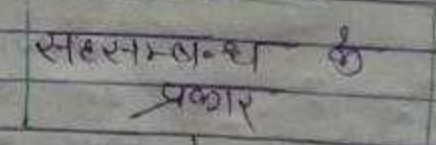 सहसम्बन्ध के
प्रकार